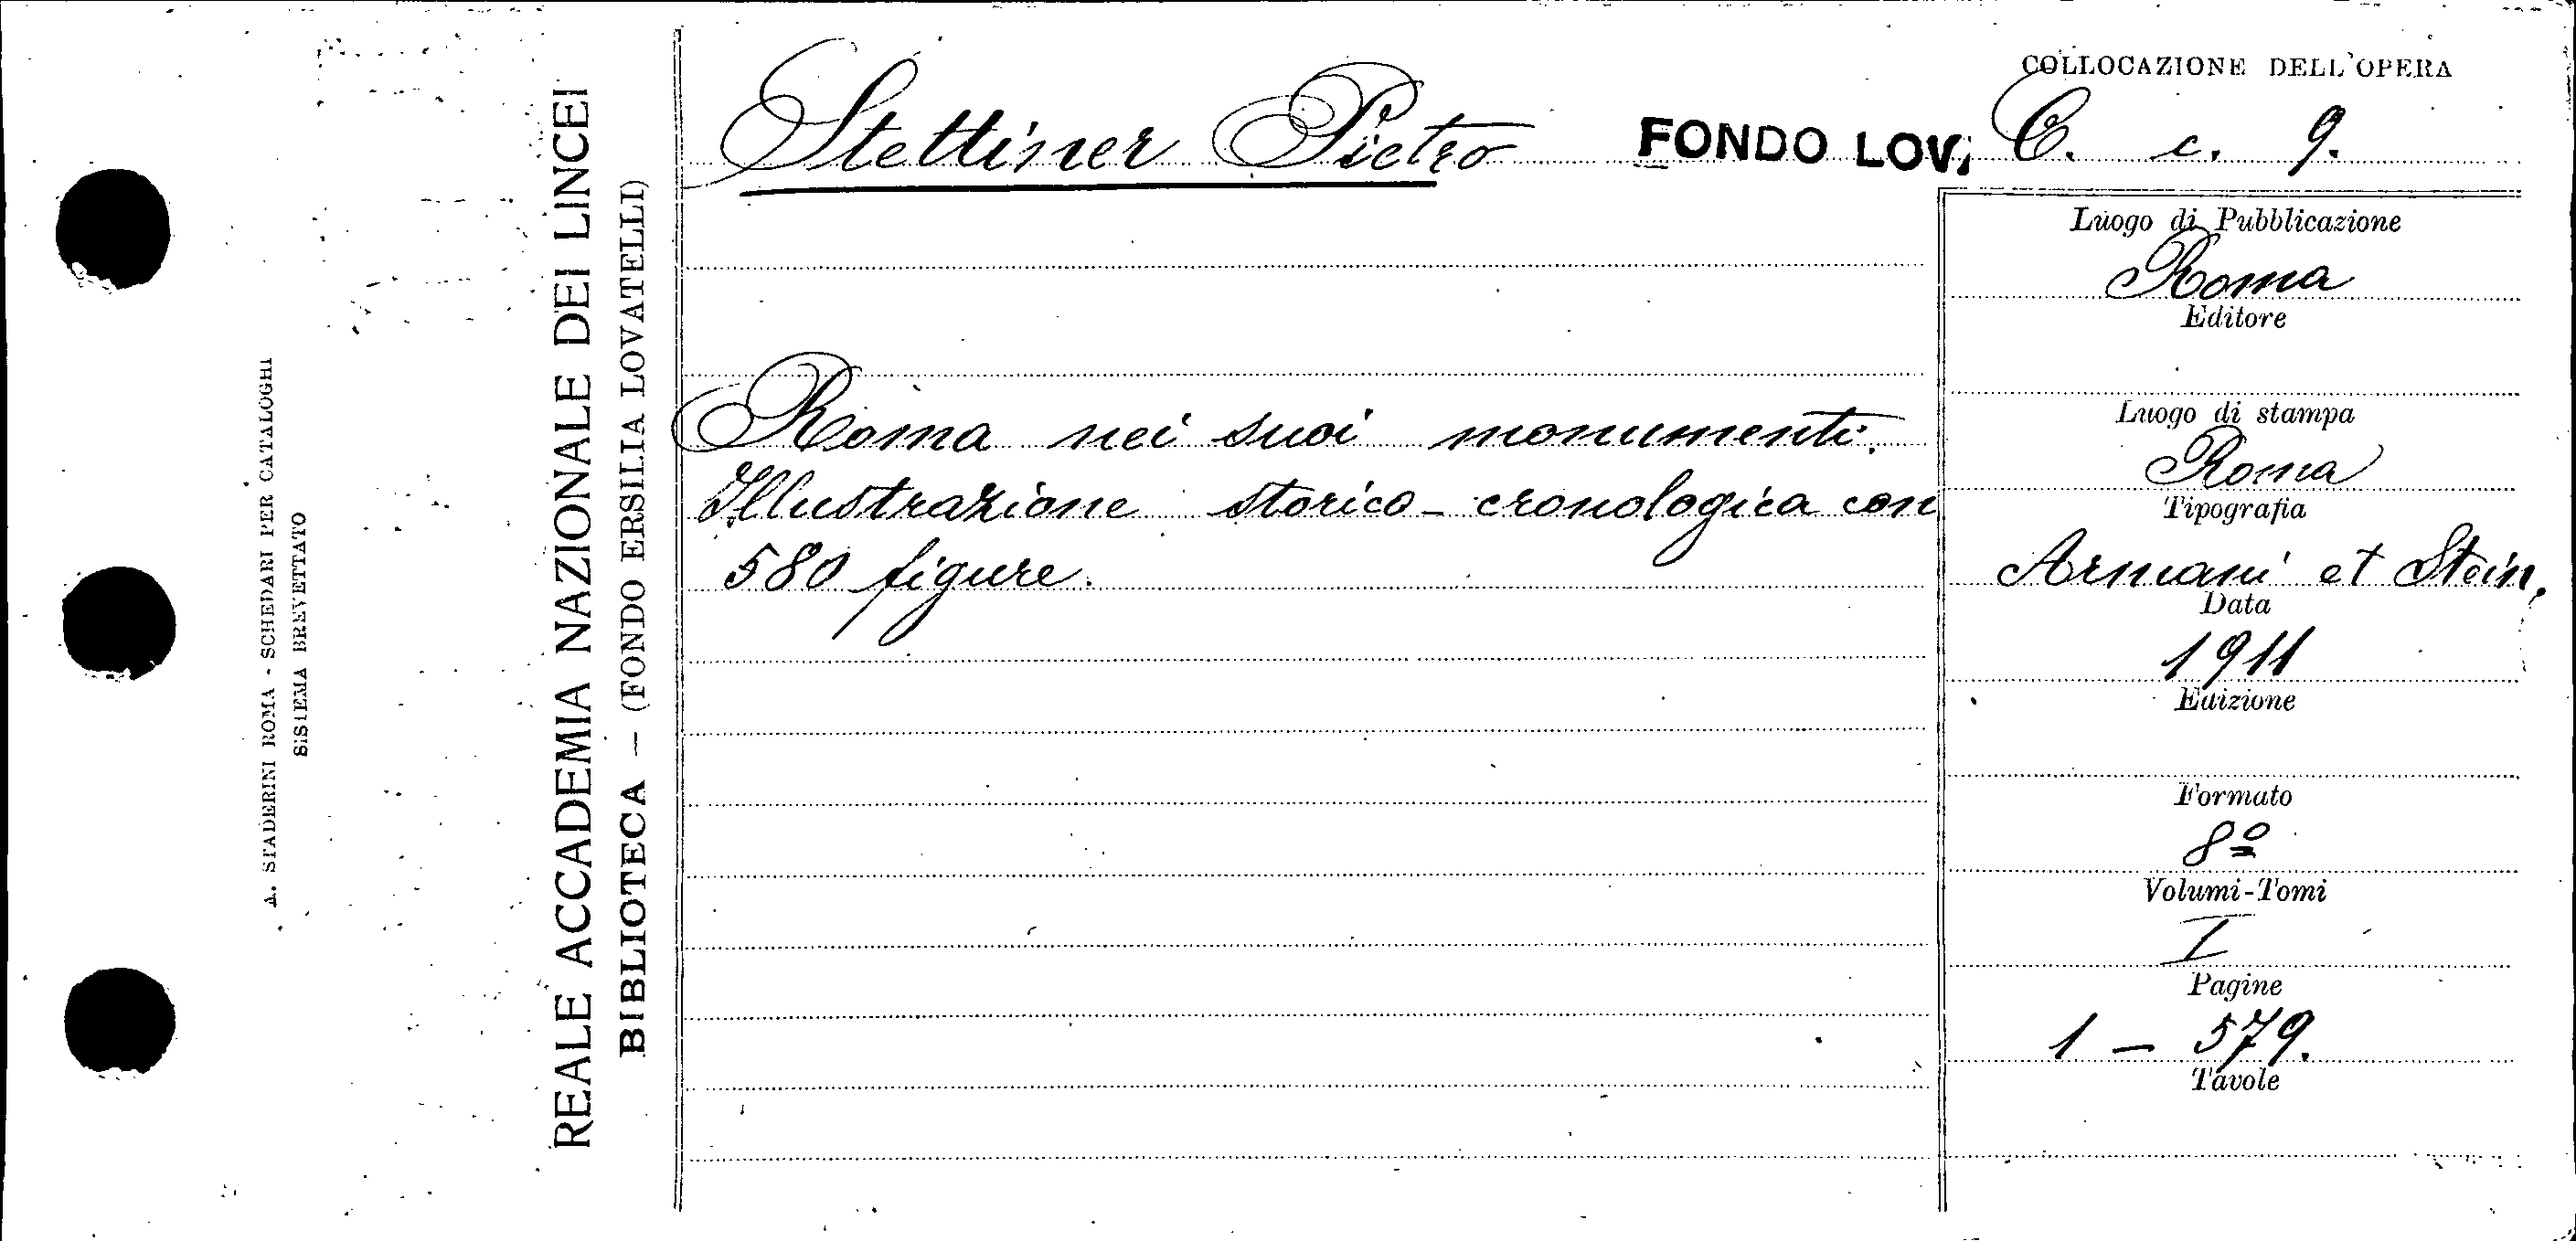 A. STADERINI ROMA - SCHEDARI PER CATALOGHI
SISTEMA BREVETTATO
REALE ACCADEMIA NAZIONALE DEI LINCEI
BIBLIOTECA — (FONDO ERSILIA LOVATELLI)
Stettiner Pietro
FONDO LOV.
Roma nei suoi monumenti.
Illustrazione storico-cronologica con
580 figure.
COLLOCAZIONE DELL'OPERA
C. c. 9.
Luogo di Pubblicazione
Roma
Editore
Luogo di stampa
Roma
Tipografia
Armani et Stein.
Data
1911
Edizione
Formato
8º
Volumi-Tomi
I
Pagine
1 – 579.
Tavole